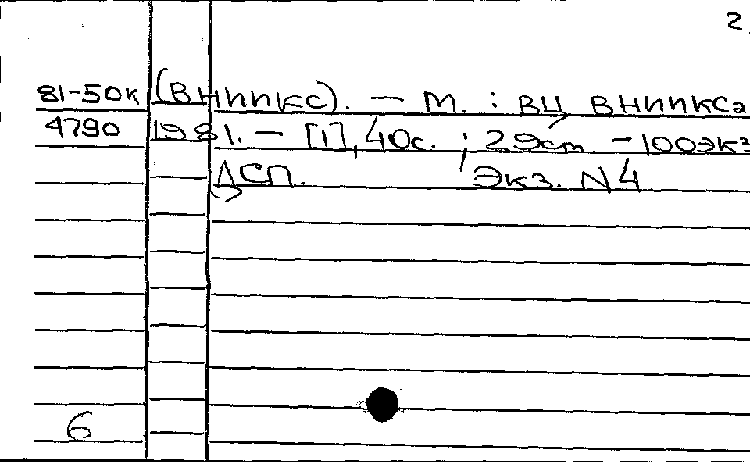 2.
81-50к (ВНИИПКС). — М. : ВЦ ВНИИПКСа
4790 1981. — [1], 40с. ; 29см. – 100экз
ДСП. Экз. N4
6